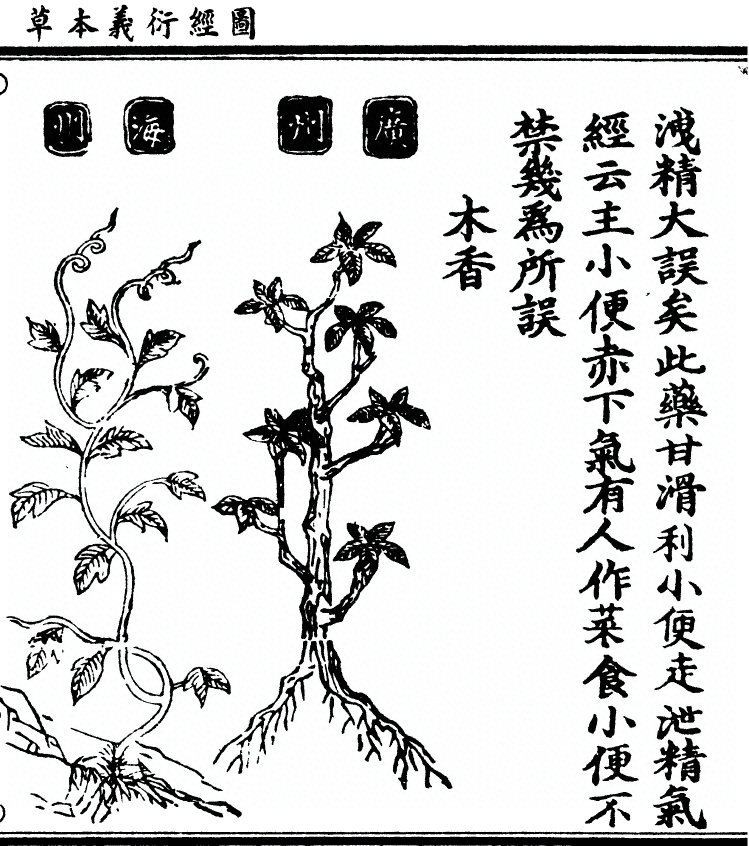 圖經衍義本草
洩精大誤矣此藥甘滑利小便走泄精氣
經云主小便赤下氣有人作菜食小便不
禁幾爲所誤
木香
廣州
海州